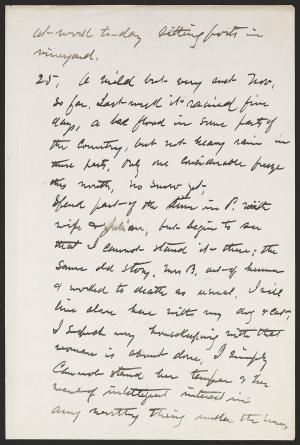 at work to-day setting posts in
vineyard.
25, A mild but very wet Nov,
so far. Last week it rained five
days, a bad flood in some parts of
the Country, but not heavy rain in
these parts, Only one considerable freeze
this month, no snow yet,
Spend part of the time in P. with
wife & Julian, but begin to see
that I cannot stand it there; the
same old story, Mrs B, out of humor
& worked to death as usual, I will
live alone here with my dog & cat,
I suspect my housekeeping with that
woman is about done, I simply
Cannot stand her temper & her
want of intelligent interest in
any worthy thing under the sun,